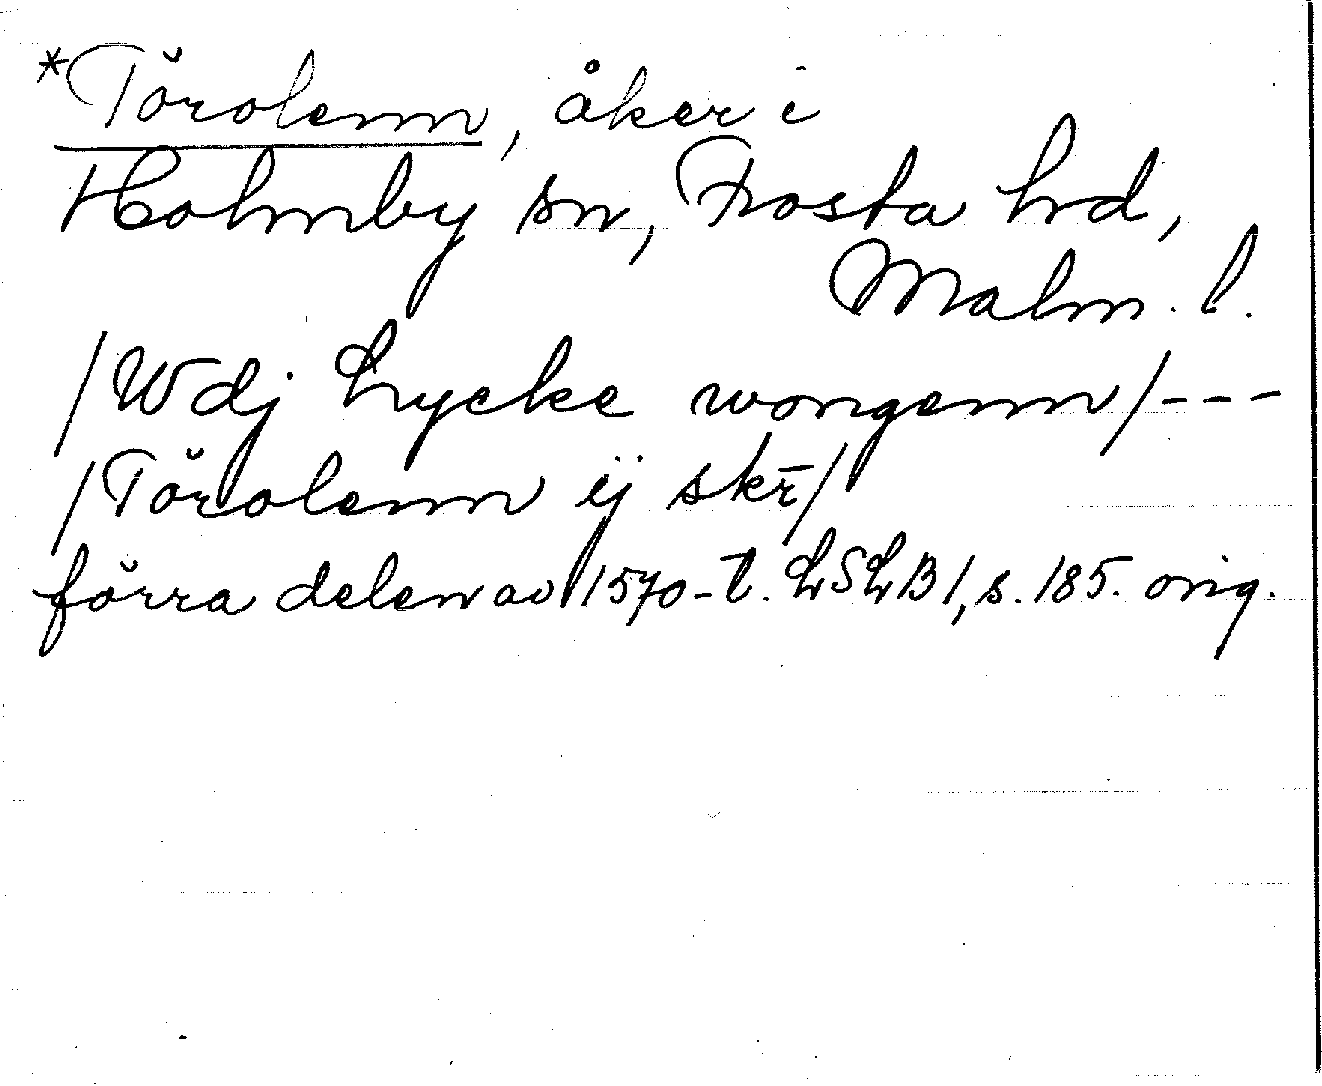 *Törolenn, åker i
Holmby sn, Frosta hrd,
Malm. l.
/Wdj Lycke wongenn/---
/Törolenn ij skr̄/
förra delen av 1570-t. LSLB 1, s. 185. orig.